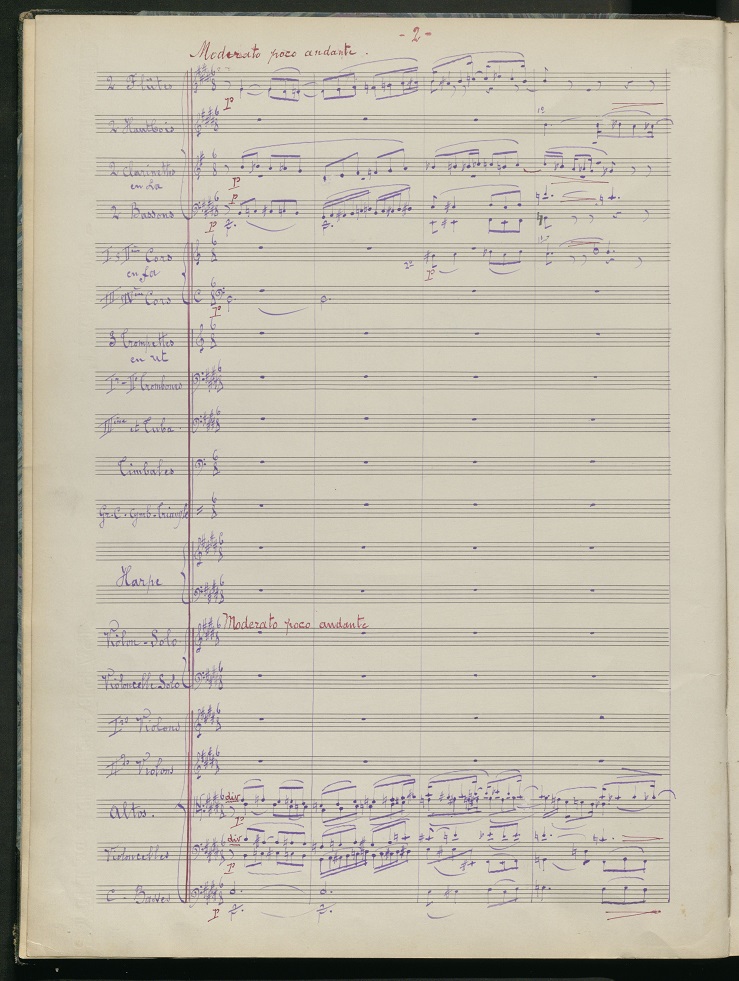 - 2 -
Moderato poco andante.
2 Flûtes
p
2 Hautbois
1º
2 Clarinettes
en La
p
p
2 Bassons
p
I & IIème Cors
en fa
1º
2º
p
III IVème Cors
p
3 Trompettes
en ut
Ir - IIe Trombones
IIIème et Tuba.
Timbales
Gr. C. - Cymb - Triangle
Harpe
Moderato poco andante
Violon - Solo
Violoncelle Solo
Irs Violons
IIds Violons
div
Altos.
p
div
Violoncelles
p
C - Basses
p